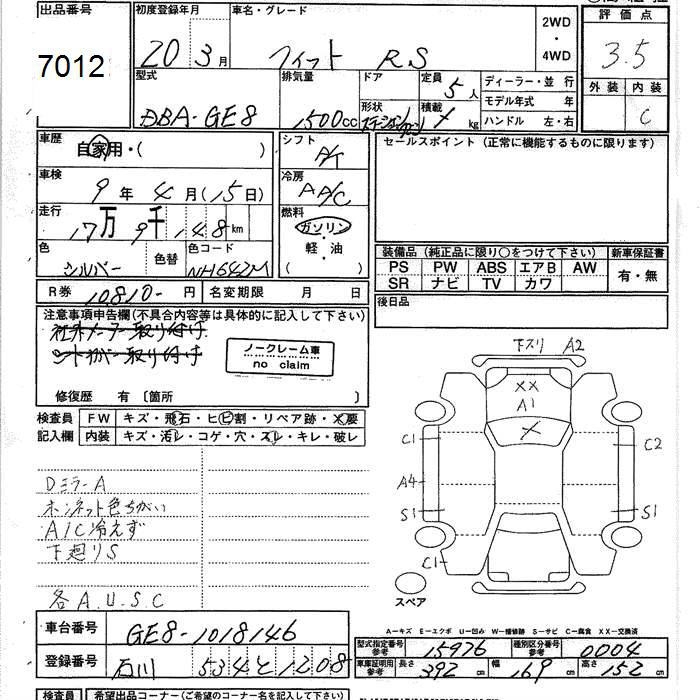 出品番号 初度登録年月 車名・グレード 2WD・4WD 評価点
7012 20 3月 フィット RS 3.5
型式 排気量 ドア 定員 5人 ディーラー・並行 外装 内装
DBA-GE8 1500cc 形状 積載 kg モデル年式 年 C
ハンドル 左・右
車歴 自家用・( ) シフト A/T セールスポイント(正常に機能するものに限ります)
車検 9年 4月(15日) 冷房 AA/C
走行 17万 9千 148km 燃料 ガソリン・軽・油 ( )
色 シルバー 色替 色コード NH642M
装備品(純正品に限り○をつけて下さい) 新車保証書
PS PW ABS エアB AW 有・無
SR ナビ TV カワ
R券 10810-円 名変期限 月 日 後日品
注意事項申告欄(不具合内容等は具体的に記入して下さい)
社外メーター取り付け
シートカバー取り付け
ノークレーム車
no claim
修復歴 有 〔箇所 〕
検査員 FW キズ・飛石・ヒビ割・リペア跡・×要
記入欄 内装 キズ・汚レ・コゲ・穴・スレ・キレ・破レ
Dミラー A
ボンネット色ちがい
A/C冷えず
下廻りS
各A.U.S.C
下スリ A2
XX
A1
X
C1 C2
A4
S1 S1
C1
スペア
A-キズ E-エクボ U-凹み W-補修跡 S-サビ C-腐食 XX-交換済
車台番号 GE8-1018146
登録番号 石川 534 と 1208
型式指定番号 参考 15976 種別区分番号 参考 0004
車庫証明用 参考 長さ 392cm 幅 169cm 高さ 152cm
検査員 希望出品コーナー(ご希望のコーナー名を記入して下さい)